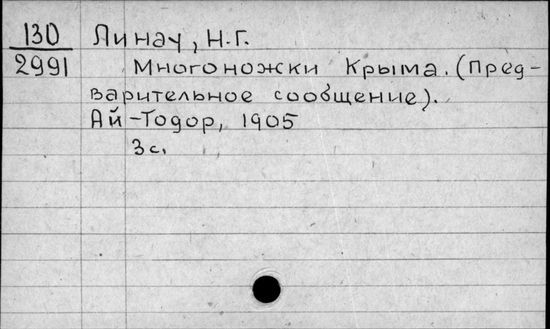 130 Линау, Н.Г.
2991 Многоножки Крыма. (Пред-
варительное сообщение).
Ай-Тодор, 1905
3 с.